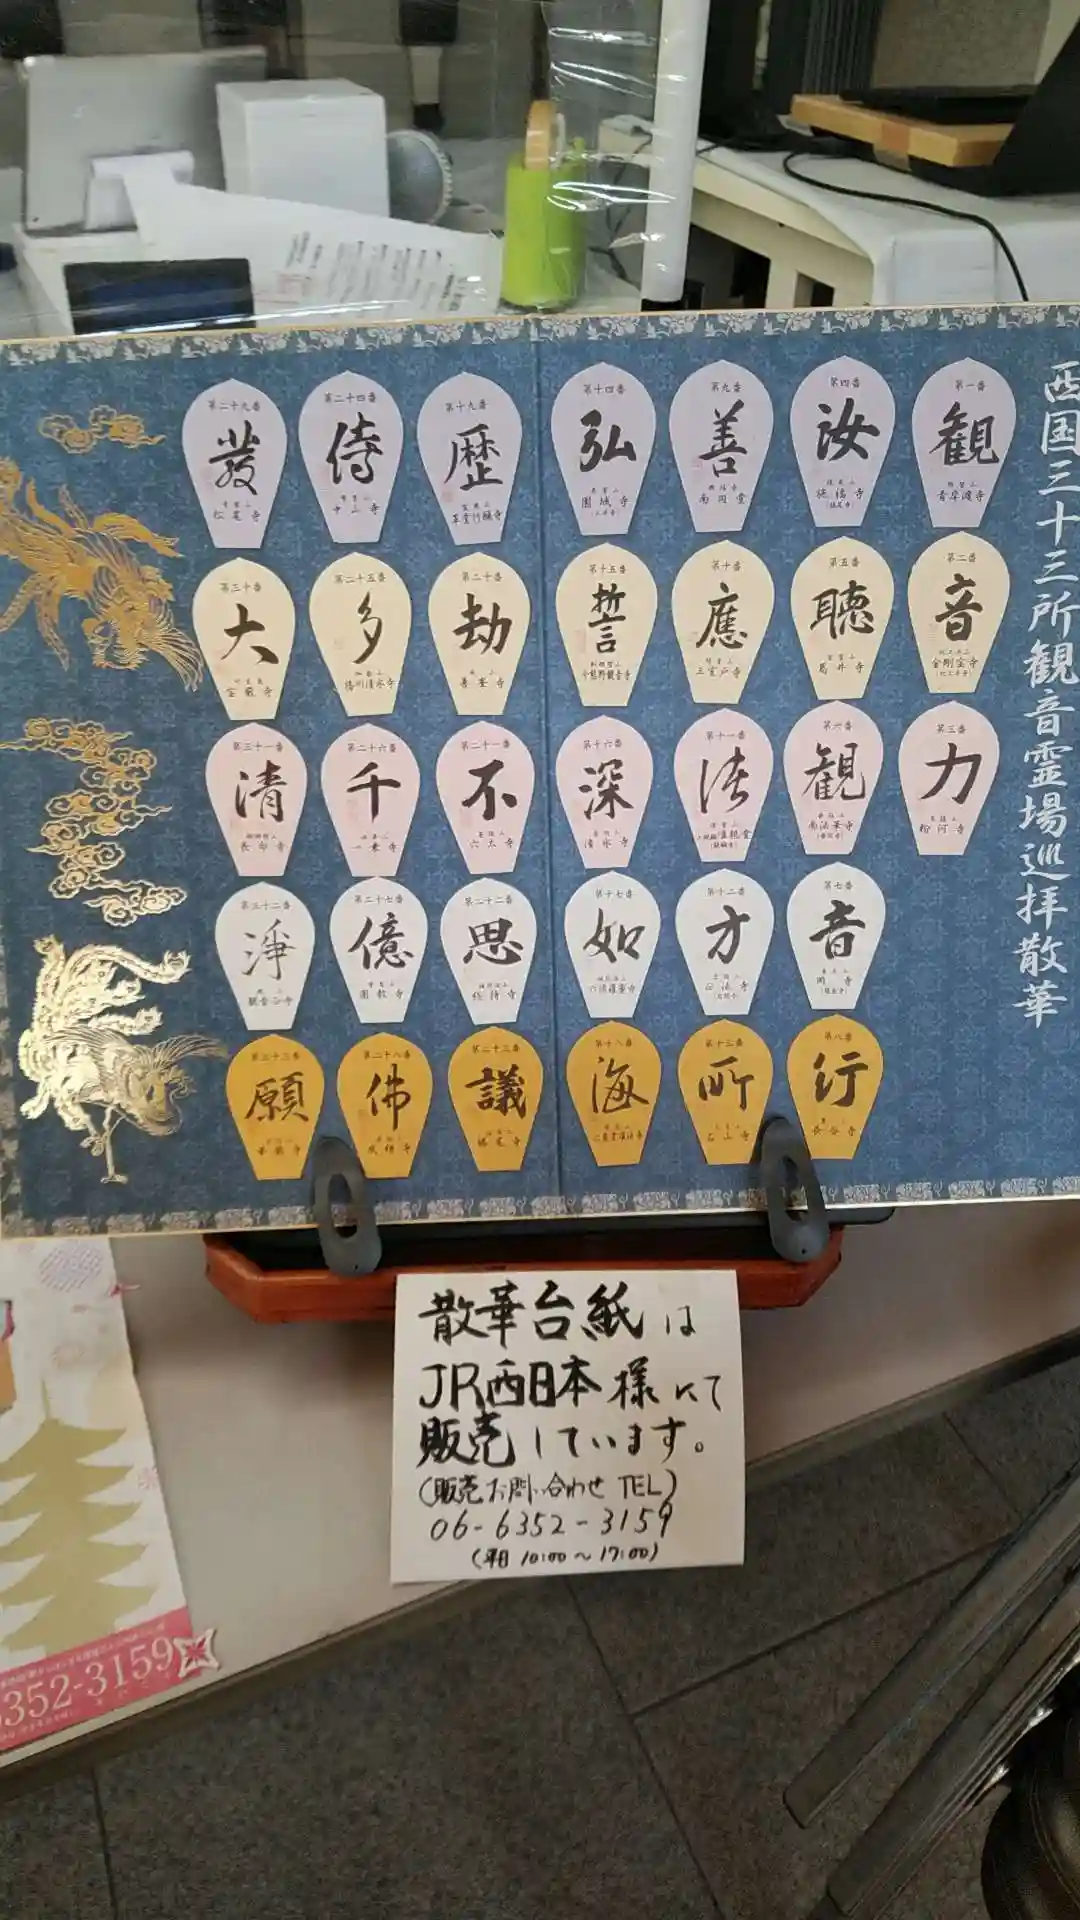 西国三十三所観音霊場巡拝散華
第一番
観
青岸渡寺
第二番
音
金剛宝寺
第三番
力
粉河寺
第四番
汝
施福寺
第五番
聴
葛井寺
第六番
観
南法華寺
第七番
音
岡寺
第八番
行
長谷寺
第九番
善
南円堂
第十番
應
三室戸寺
第十一番
第十二番
方
第十三番
所
石山寺
第十四番
弘
園城寺
第十五番
誓
今熊野観音寺
第十六番
深
清水寺
第十七番
如
六波羅蜜寺
第十八番
海
第十九番
歴
第二十番
劫
善峯寺
第二十一番
不
第二十二番
思
総持寺
第二十三番
議
勝尾寺
第二十四番
侍
中山寺
第二十五番
多
播州清水寺
第二十六番
千
一乗寺
第二十七番
億
圓教寺
第二十八番
佛
成相寺
第二十九番
發
松尾寺
第三十番
大
宝厳寺
第三十一番
清
長命寺
第三十二番
淨
第三十三番
願
華厳寺
散華台紙は
JR西日本様にて
販売しています。
(販売お問い合わせ TEL)
06-6352-3159
(平日 10:00〜17:00)
352-3159